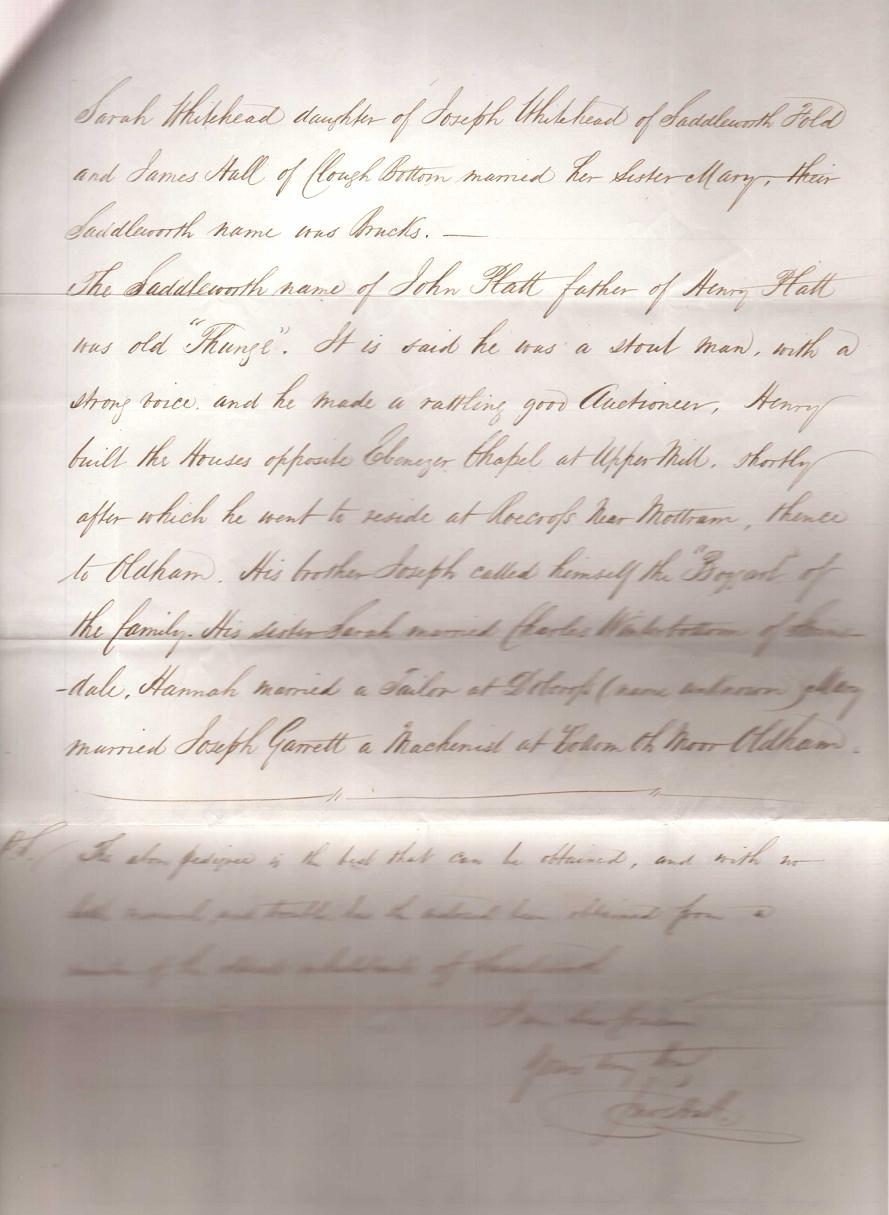 Sarah Whitehead daughter of Joseph Whitehead of Saddleworth Fold
and James Hall of Clough Bottom married her sister Mary, their
Saddleworth name was Brucks. —
The Saddleworth name of John Platt father of Henry Platt
was old "Thunge". It is said he was a stout man, with a
strong voice. and he made a rattling good Auctioneer, Henry
built the Houses opposite Ebenezer Chapel at Upper Mill. shortly
after which he went to reside at Roecross Near Mottram, thence
to Oldham. His brother Joseph called himself the "Boggart" of
the family. His sister Sarah married Charles Winterbottom of
-dale, Hannah married a Tailor at Dobcross (name unknown) Mary
married Joseph Garrett a Machenist at Bottom Oth Moor Oldham.
P.S. The above pedigree is the best that can be obtained, and with no
obtained from a
of the
Yours very truly